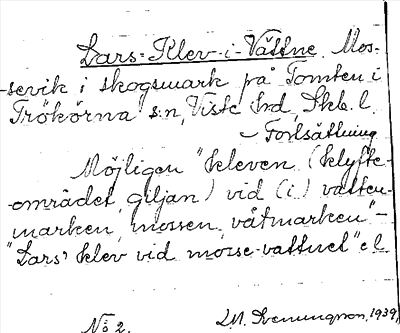 Lars-Klev-i-Vättne Mos-
-sevik i skogsmark på Tomten i
Trökörna s:n, Viste hrd, Skb. l.
– Fortsättning
Möjligen "kleven (klyfte-
-området, giljan) vid (i) vatten-
marken, mossen, våtmarken" –
"Lars' klev vid mosse-vattnet" el.
No 2. 1939,